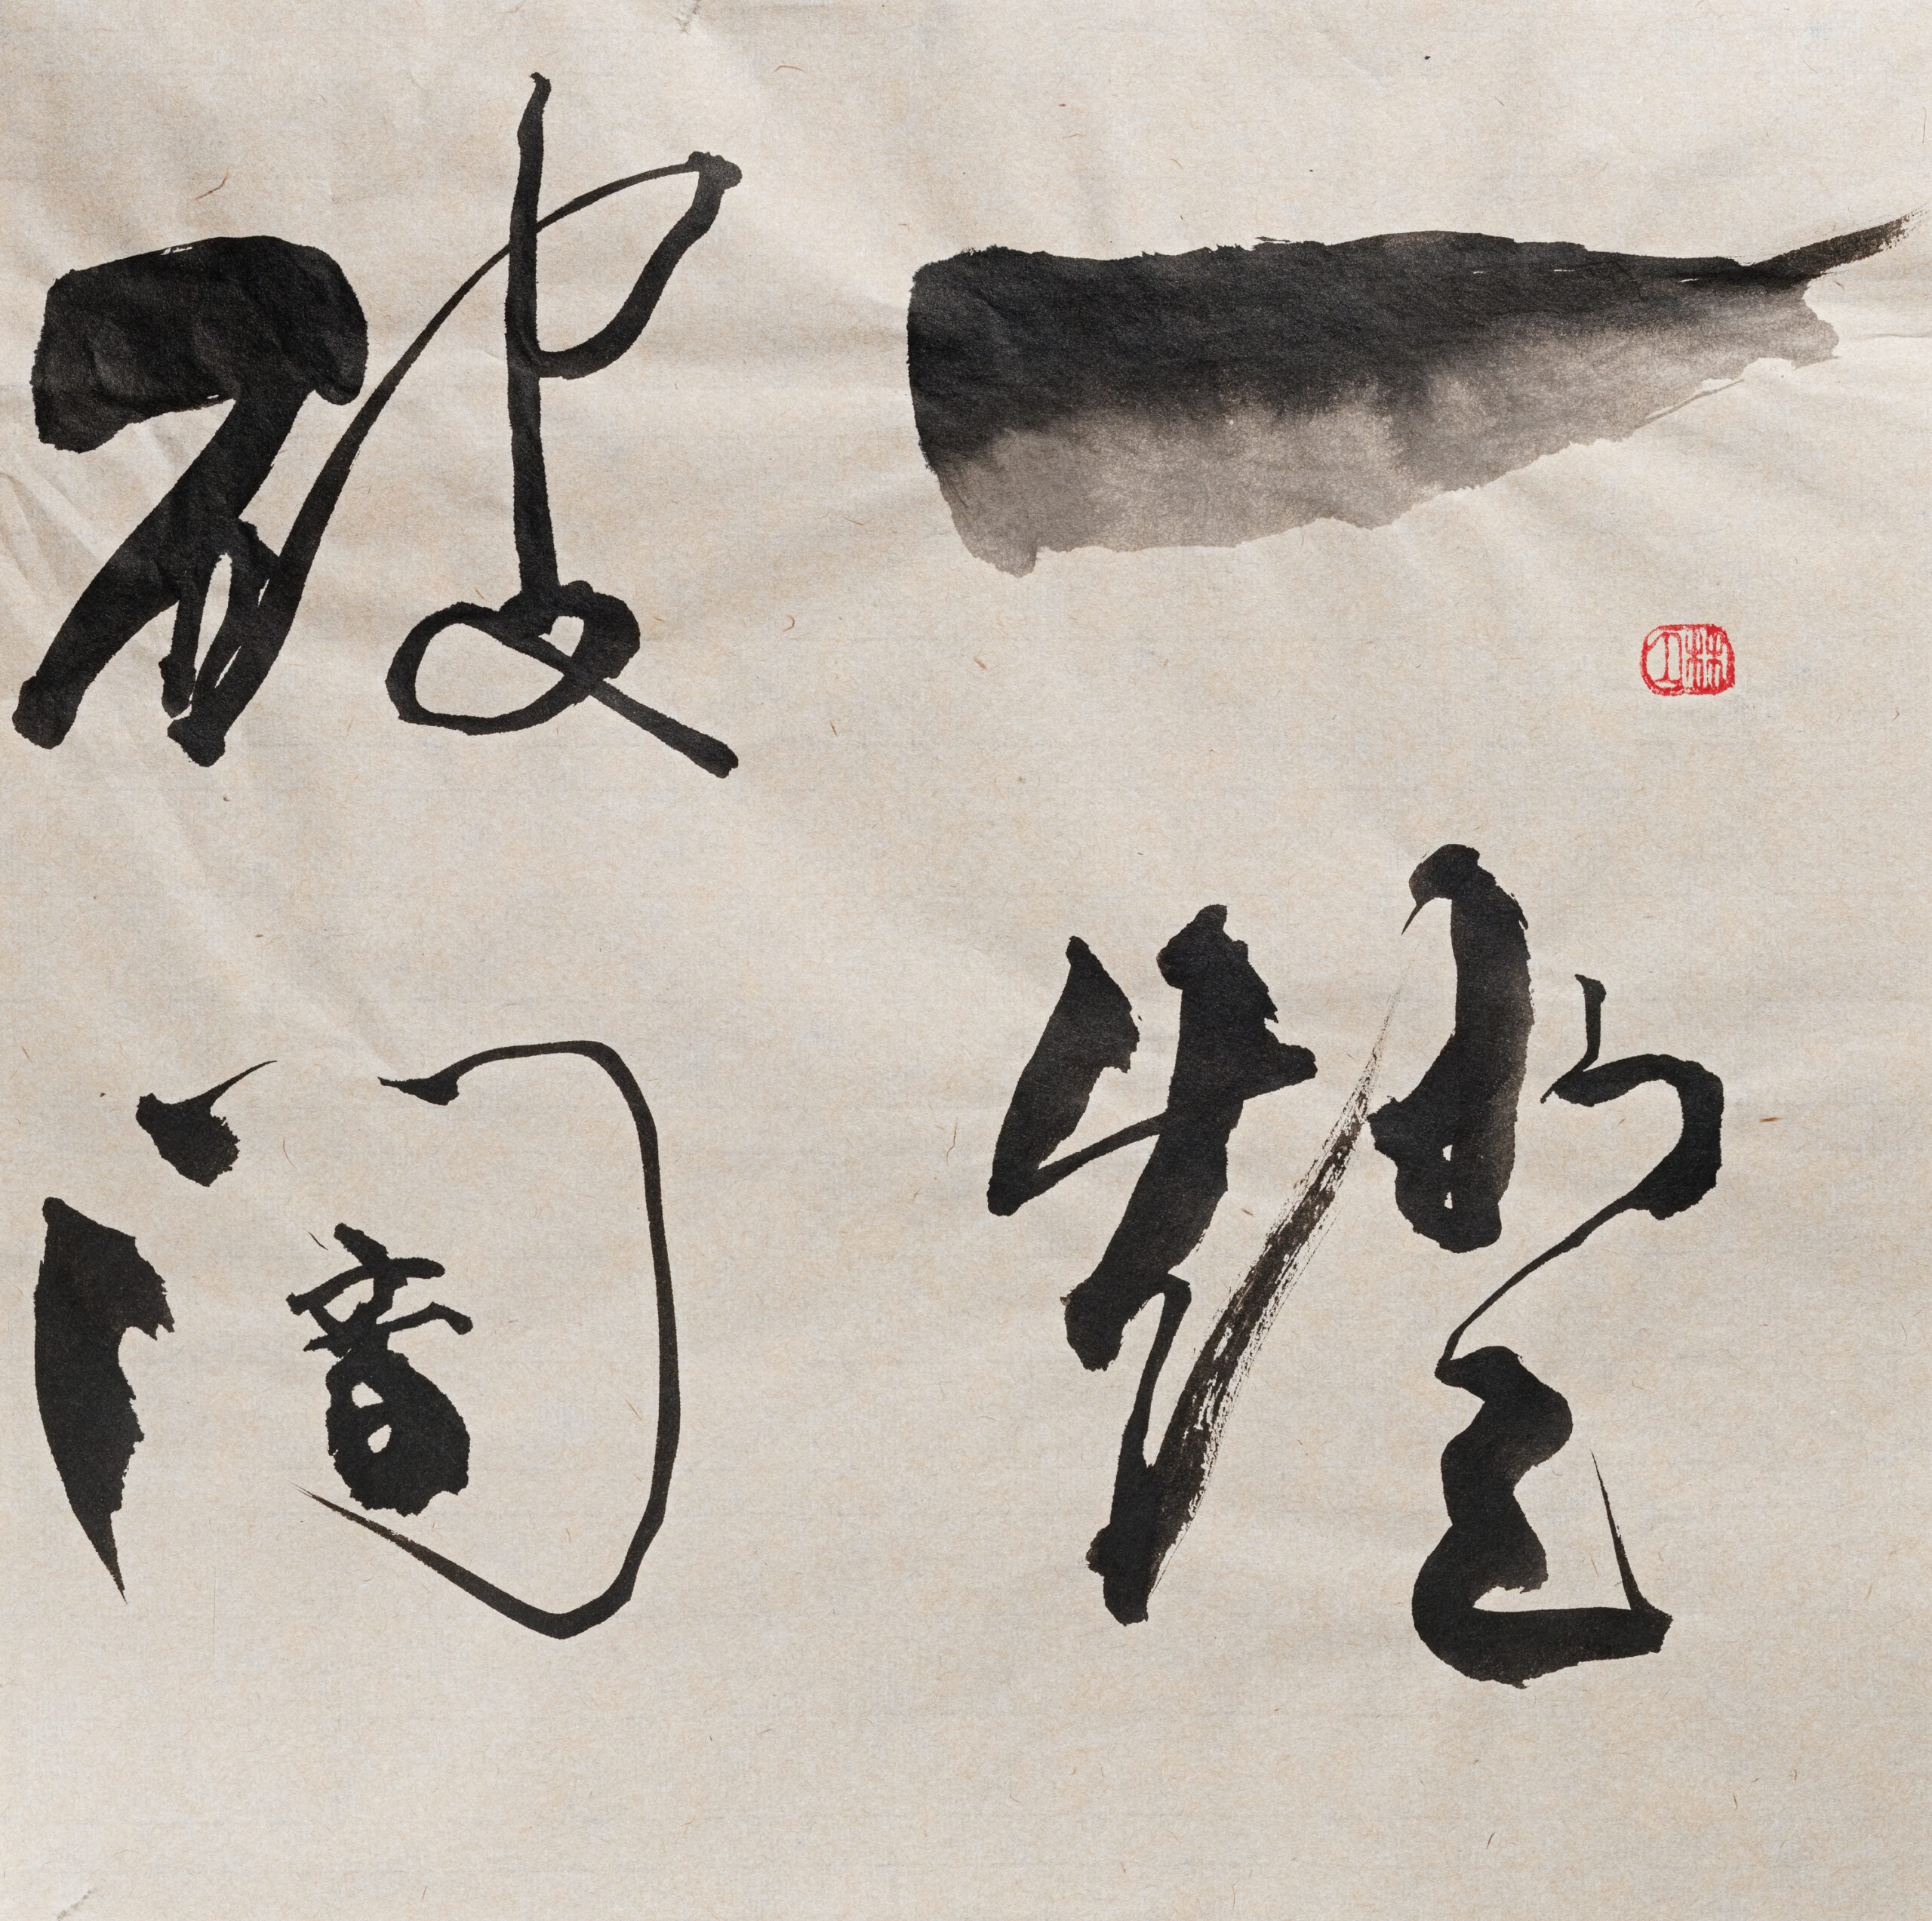 一燈
破闇